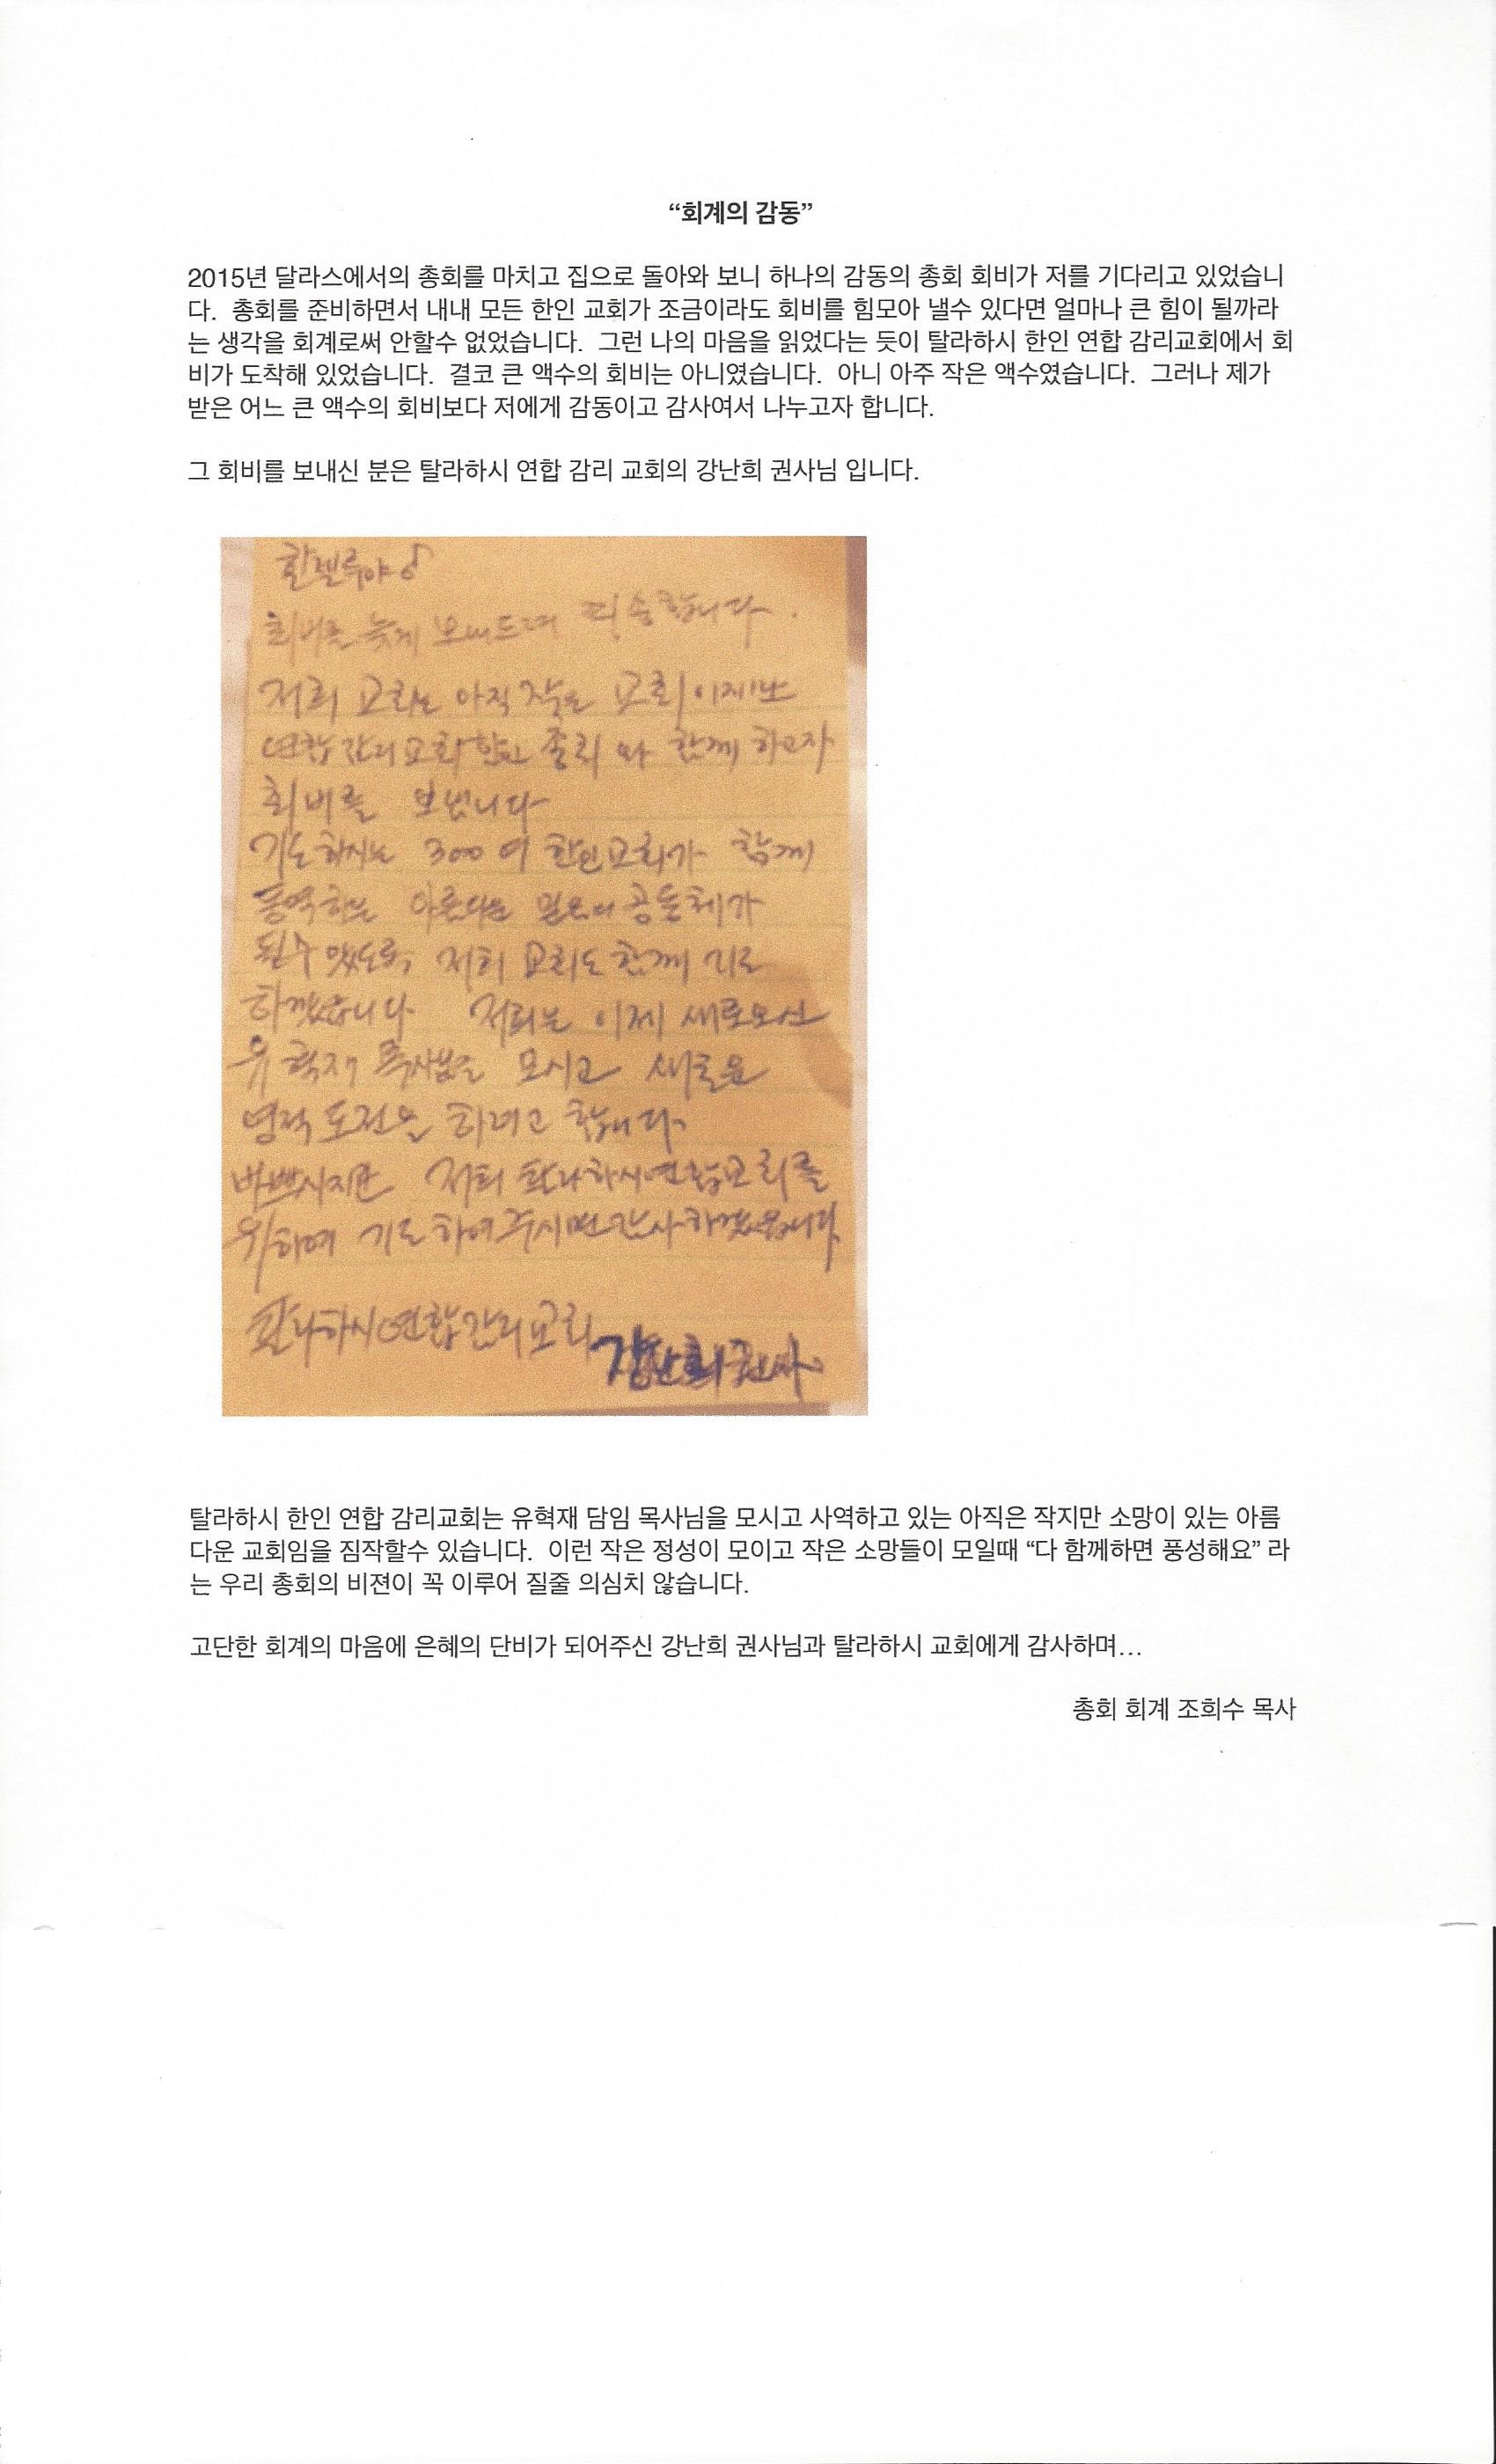 “회계의 감동”
2015년 달라스에서의 총회를 마치고 집으로 돌아와 보니 하나의 감동의 총회 회비가 저를 기다리고 있었습니
다. 총회를 준비하면서 내내 모든 한인 교회가 조금이라도 회비를 힘모아 낼수 있다면 얼마나 큰 힘이 될까라
는 생각을 회계로써 안할수 없었습니다. 그런 나의 마음을 읽었다는 듯이 탈라하시 한인 연합 감리교회에서 회
비가 도착해 있었습니다. 결코 큰 액수의 회비는 아니였습니다. 아니 아주 작은 액수였습니다. 그러나 제가
받은 어느 큰 액수의 회비보다 저에게 감동이고 감사여서 나누고자 합니다.
그 회비를 보내신 분은 탈라하시 연합 감리 교회의 강난희 권사님 입니다.
할렐루야♪
회비를 늦게 보내드려 죄송합니다.
저희 교회는 아직 작은 교회이지만
연합감리교회 한인 총회와 함께 하고자
회비를 보냅니다
기도하시는 300여 한인교회가 함께
동역하는 아름다운 믿음의 공동체가
될수 있도록, 저희 교회도 함께 기도
하겠습니다 저희는 이제 새로오신
유혁재 목사님을 모시고 새로운
영적 도전을 하려고 합니다.
바쁘시지만 저희 탈라하시연합교회를
위하여 기도하여주시면 감사하겠습니다
탈라하시연합감리교회
강난희권사.
탈라하시 한인 연합 감리교회는 유혁재 담임 목사님을 모시고 사역하고 있는 아직은 작지만 소망이 있는 아름
다운 교회임을 짐작할수 있습니다. 이런 작은 정성이 모이고 작은 소망들이 모일때 “다 함께하면 풍성해요” 라
는 우리 총회의 비젼이 꼭 이루어 질줄 의심치 않습니다.
고단한 회계의 마음에 은혜의 단비가 되어주신 강난희 권사님과 탈라하시 교회에게 감사하며...
총회 회계 조희수 목사